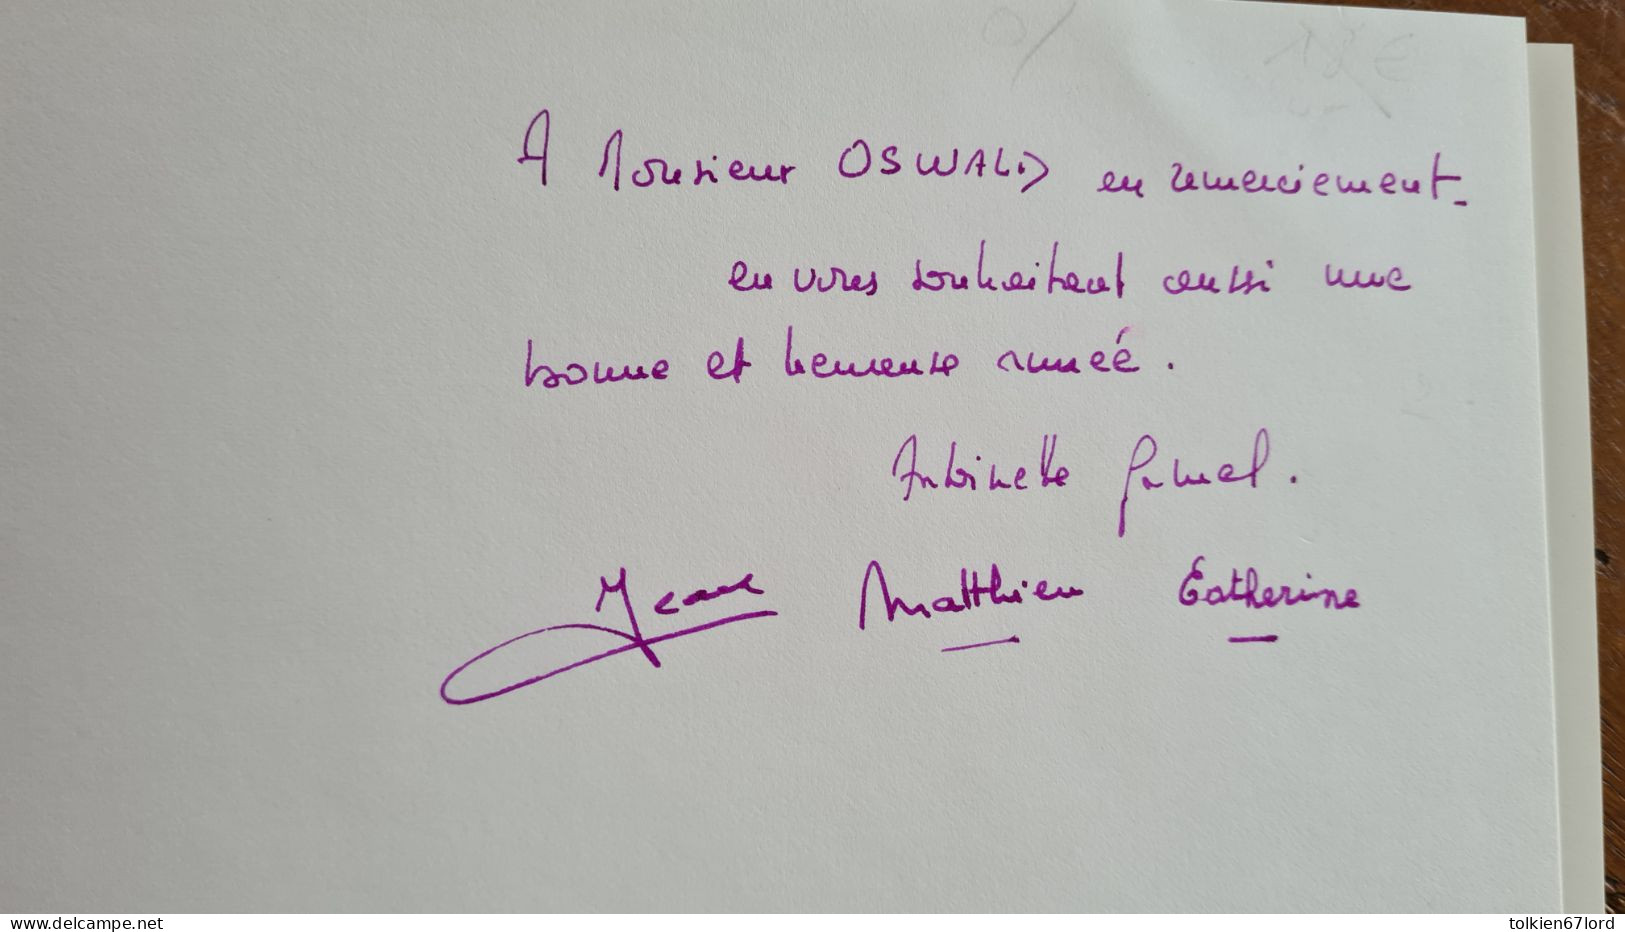 A Monsieur OSWALD en remerciement.
en vous souhaitant aussi une
bonne et heureuse année.
Antoinette
Matthieu Catherine
delcampe.net
tolkien67lord